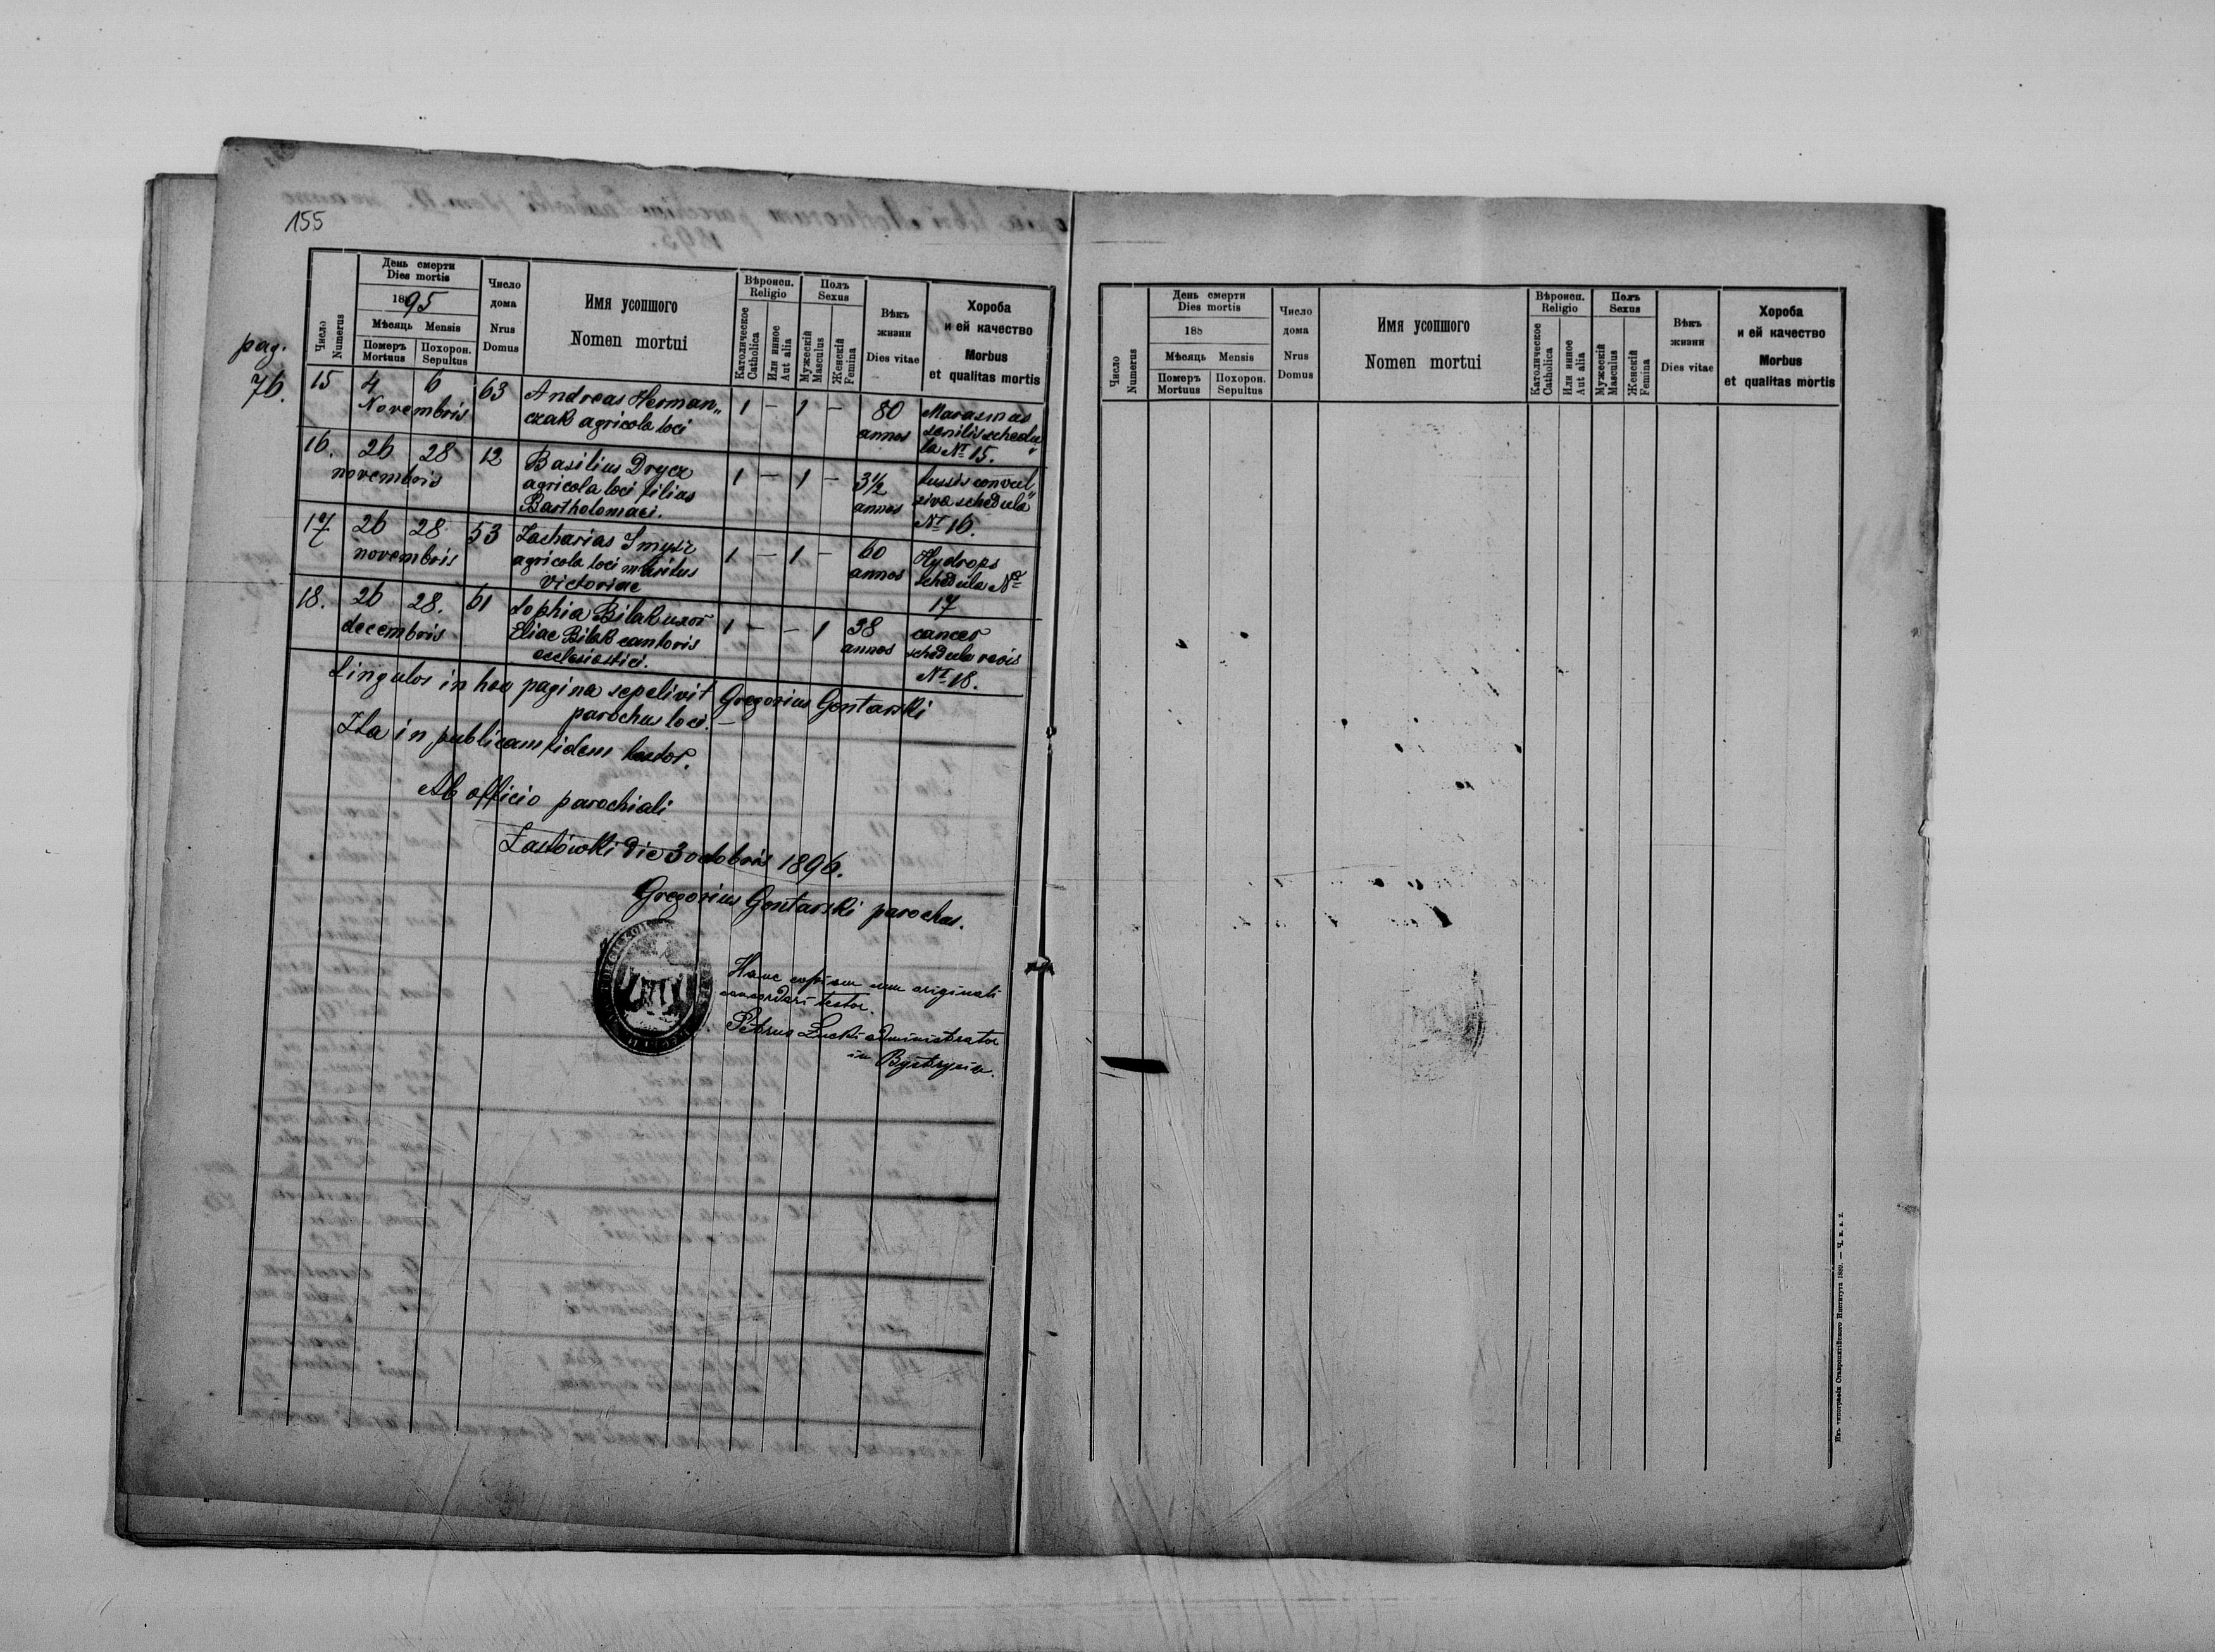 155
pag.
76.
Число
Numerus
День смерти
Dies mortis
1895
Мѣсяць Mensis
Померъ
Mortuus
Похорон.
Sepultus
Число
дома
Nrus
Domus
Имя усопшого
Nomen mortui
Вѣроисп.
Religio
Католическое
Catholica
Или инное
Aut alia
Полъ
Sexus
Мужескій
Masculus
Женскій
Femina
Вѣкъ
жизни
Dies vitae
Хороба
и ей качество
Morbus
et qualitas mortis
15 4 6 63 Andreas Herman„ 1 — 1 — 80 Marasmus
Novembris czak agricola loci annos senilis schedu„
la № 15.
16. 26 28 12 Basilius Drycz 1 — 1 — 3½ tussis convul„
novembris agricola loci filius annos siva schedula
Bartholomaei. № 16.
17 26 28 53 Zacharias Smysz 1 — 1 — 60 Hydrops
novembris agricola loci maritus annos schedula №
Victoriae 17
18. 26 28. 61 Sophia Bilak uxor 1 — — 1 38 cancer
decembris Eliae Bilak cantoris annos schedula revis
ecclesiastici. № 18.
Singulos in hac pagina sepelivit Gregorius Gontarski
parochus loci. —
Ita in publicam fidem testor.
Ab officio parochiali
Łastówki die 3 octobris 1896.
Gregorius Gontarski parochus.
Hanc copiam cum originali
concordari testor.
Petrus Łucki administrator
in Bystrycia.
Число
Numerus
День смерти
Dies mortis
188
Мѣсяць Mensis
Померъ
Mortuus
Похорон.
Sepultus
Число
дома
Nrus
Domus
Имя усопшого
Nomen mortui
Вѣроисп.
Religio
Католическое
Catholica
Или инное
Aut alia
Полъ
Sexus
Мужескій
Masculus
Женскій
Femina
Вѣкъ
жизни
Dies vitae
Хороба
и ей качество
Morbus
et qualitas mortis
Изъ типографіи Ставропигійского Института 1889. — Ч. в. в. 2.